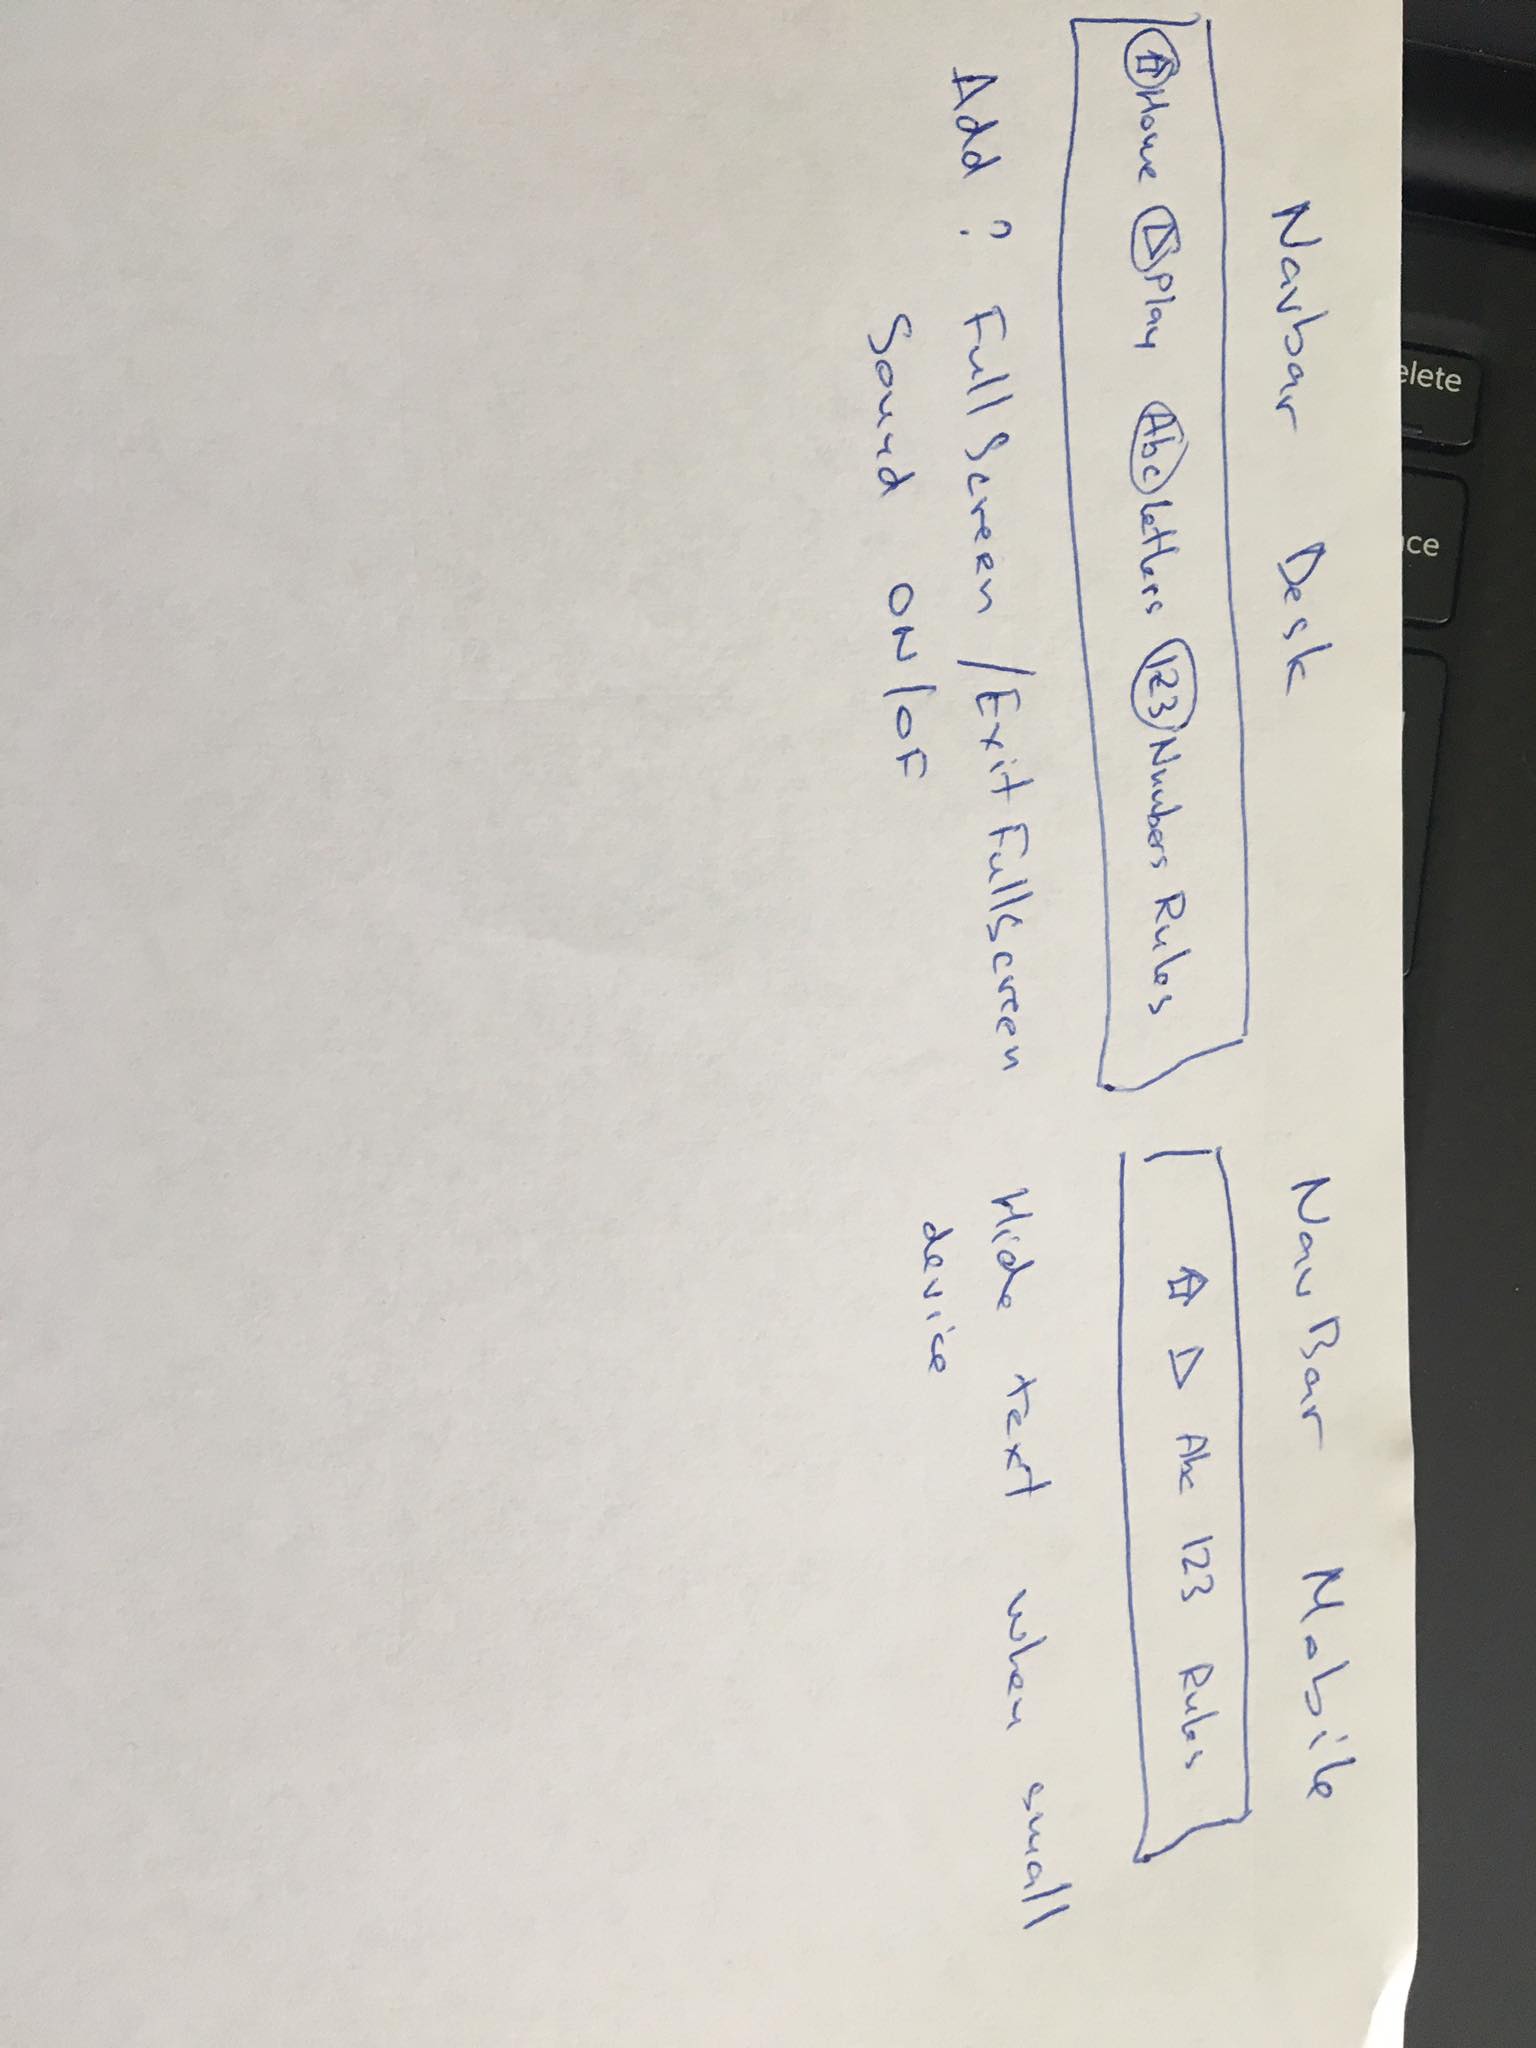 Navbar Desk
Home Play Abc Letters 123 Numbers Rules
Add ? Full Screen / Exit Full Screen
Sound ON/OF
NavBar Mobile
Abc 123 Rules
Hide text when small
device
elete